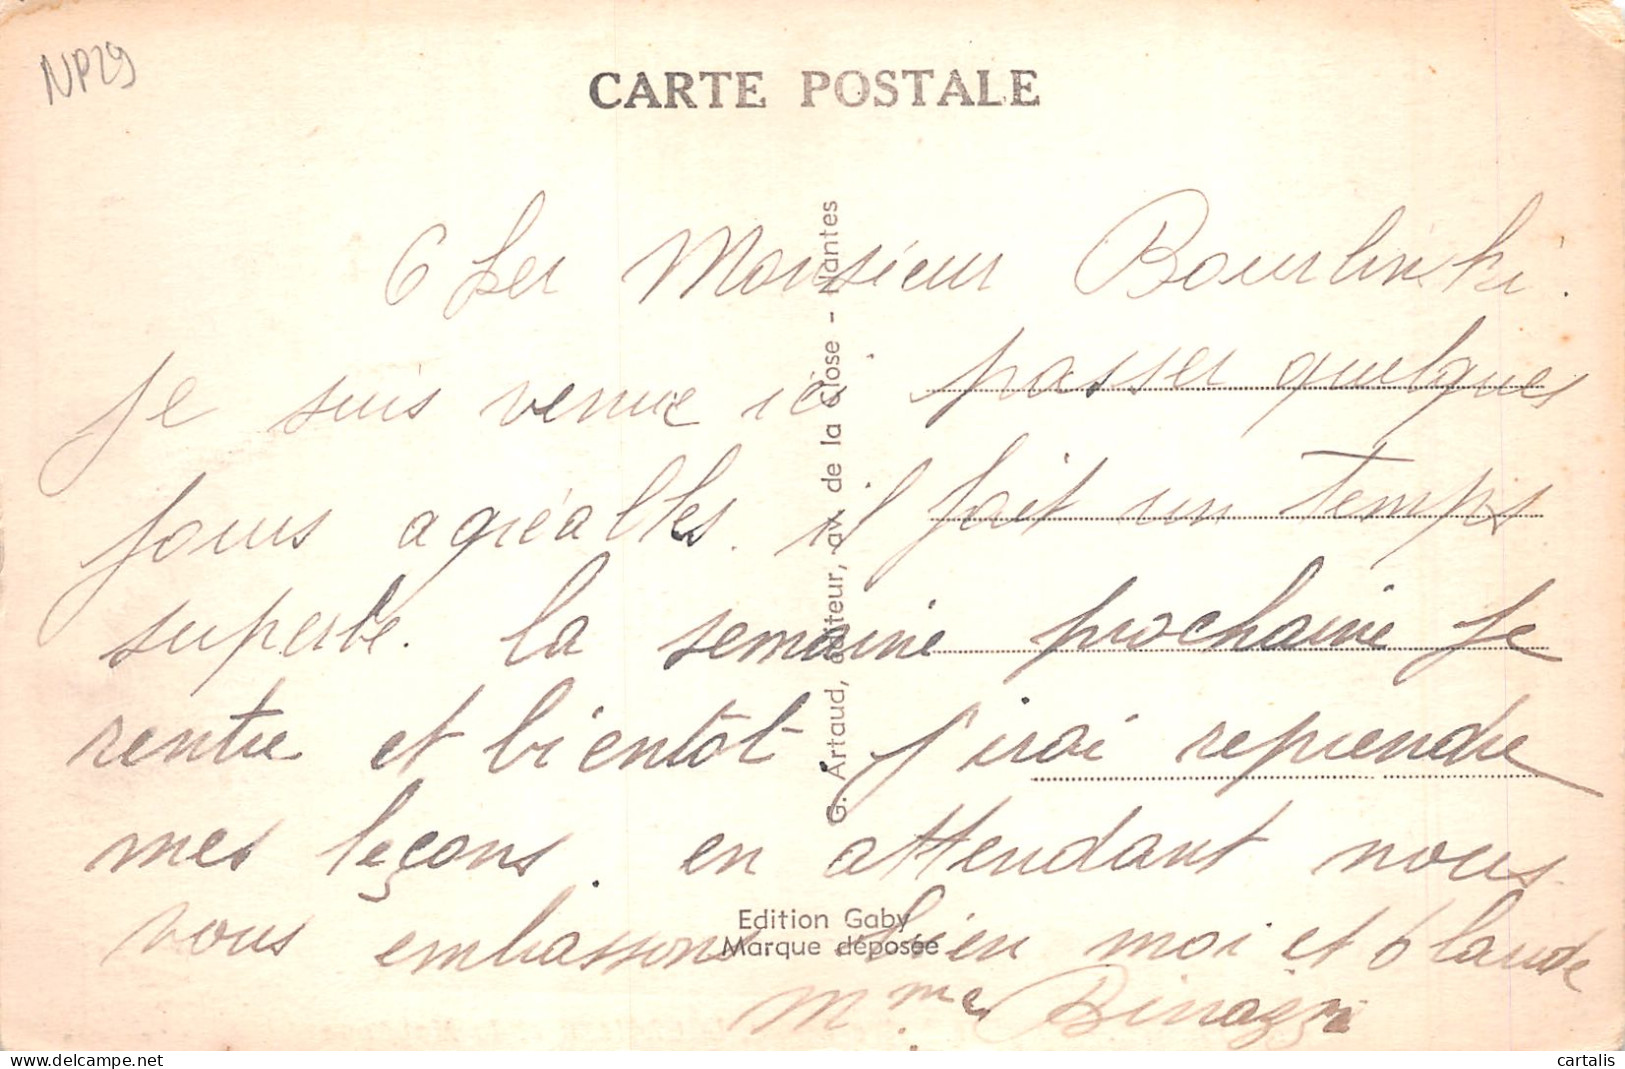 NP29
CARTE POSTALE
Cher Monsieur Bourlinski.
je suis venue ici passer quelques
jours agréables. il fait un temps
superbe. la semaine prochaine je
rentre et bientôt j'irai reprendre
mes leçons. en attendant nous
vous embassons bien moi et Claude
Mme Binazzi
G. Artaud, éditeur, av. de la Close - Nantes
Edition Gaby
Marque déposée
delcampe.net
cartalis